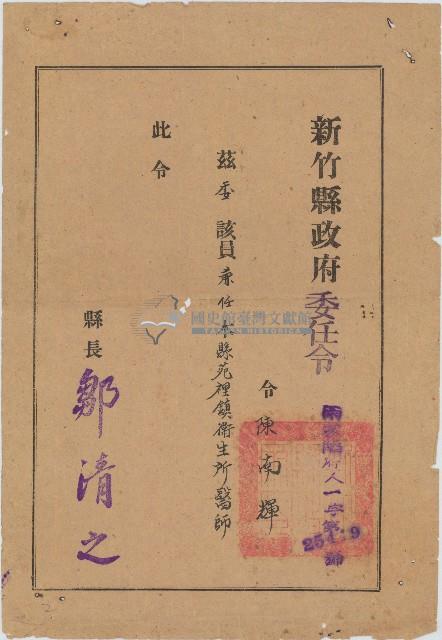 新竹縣政府委任令
令 陳南輝
茲委 該員兼任本縣苑裡鎮衛生所醫師
此令
縣長 鄒清之
國史館臺灣文獻館
TAIWAN HISTORICA